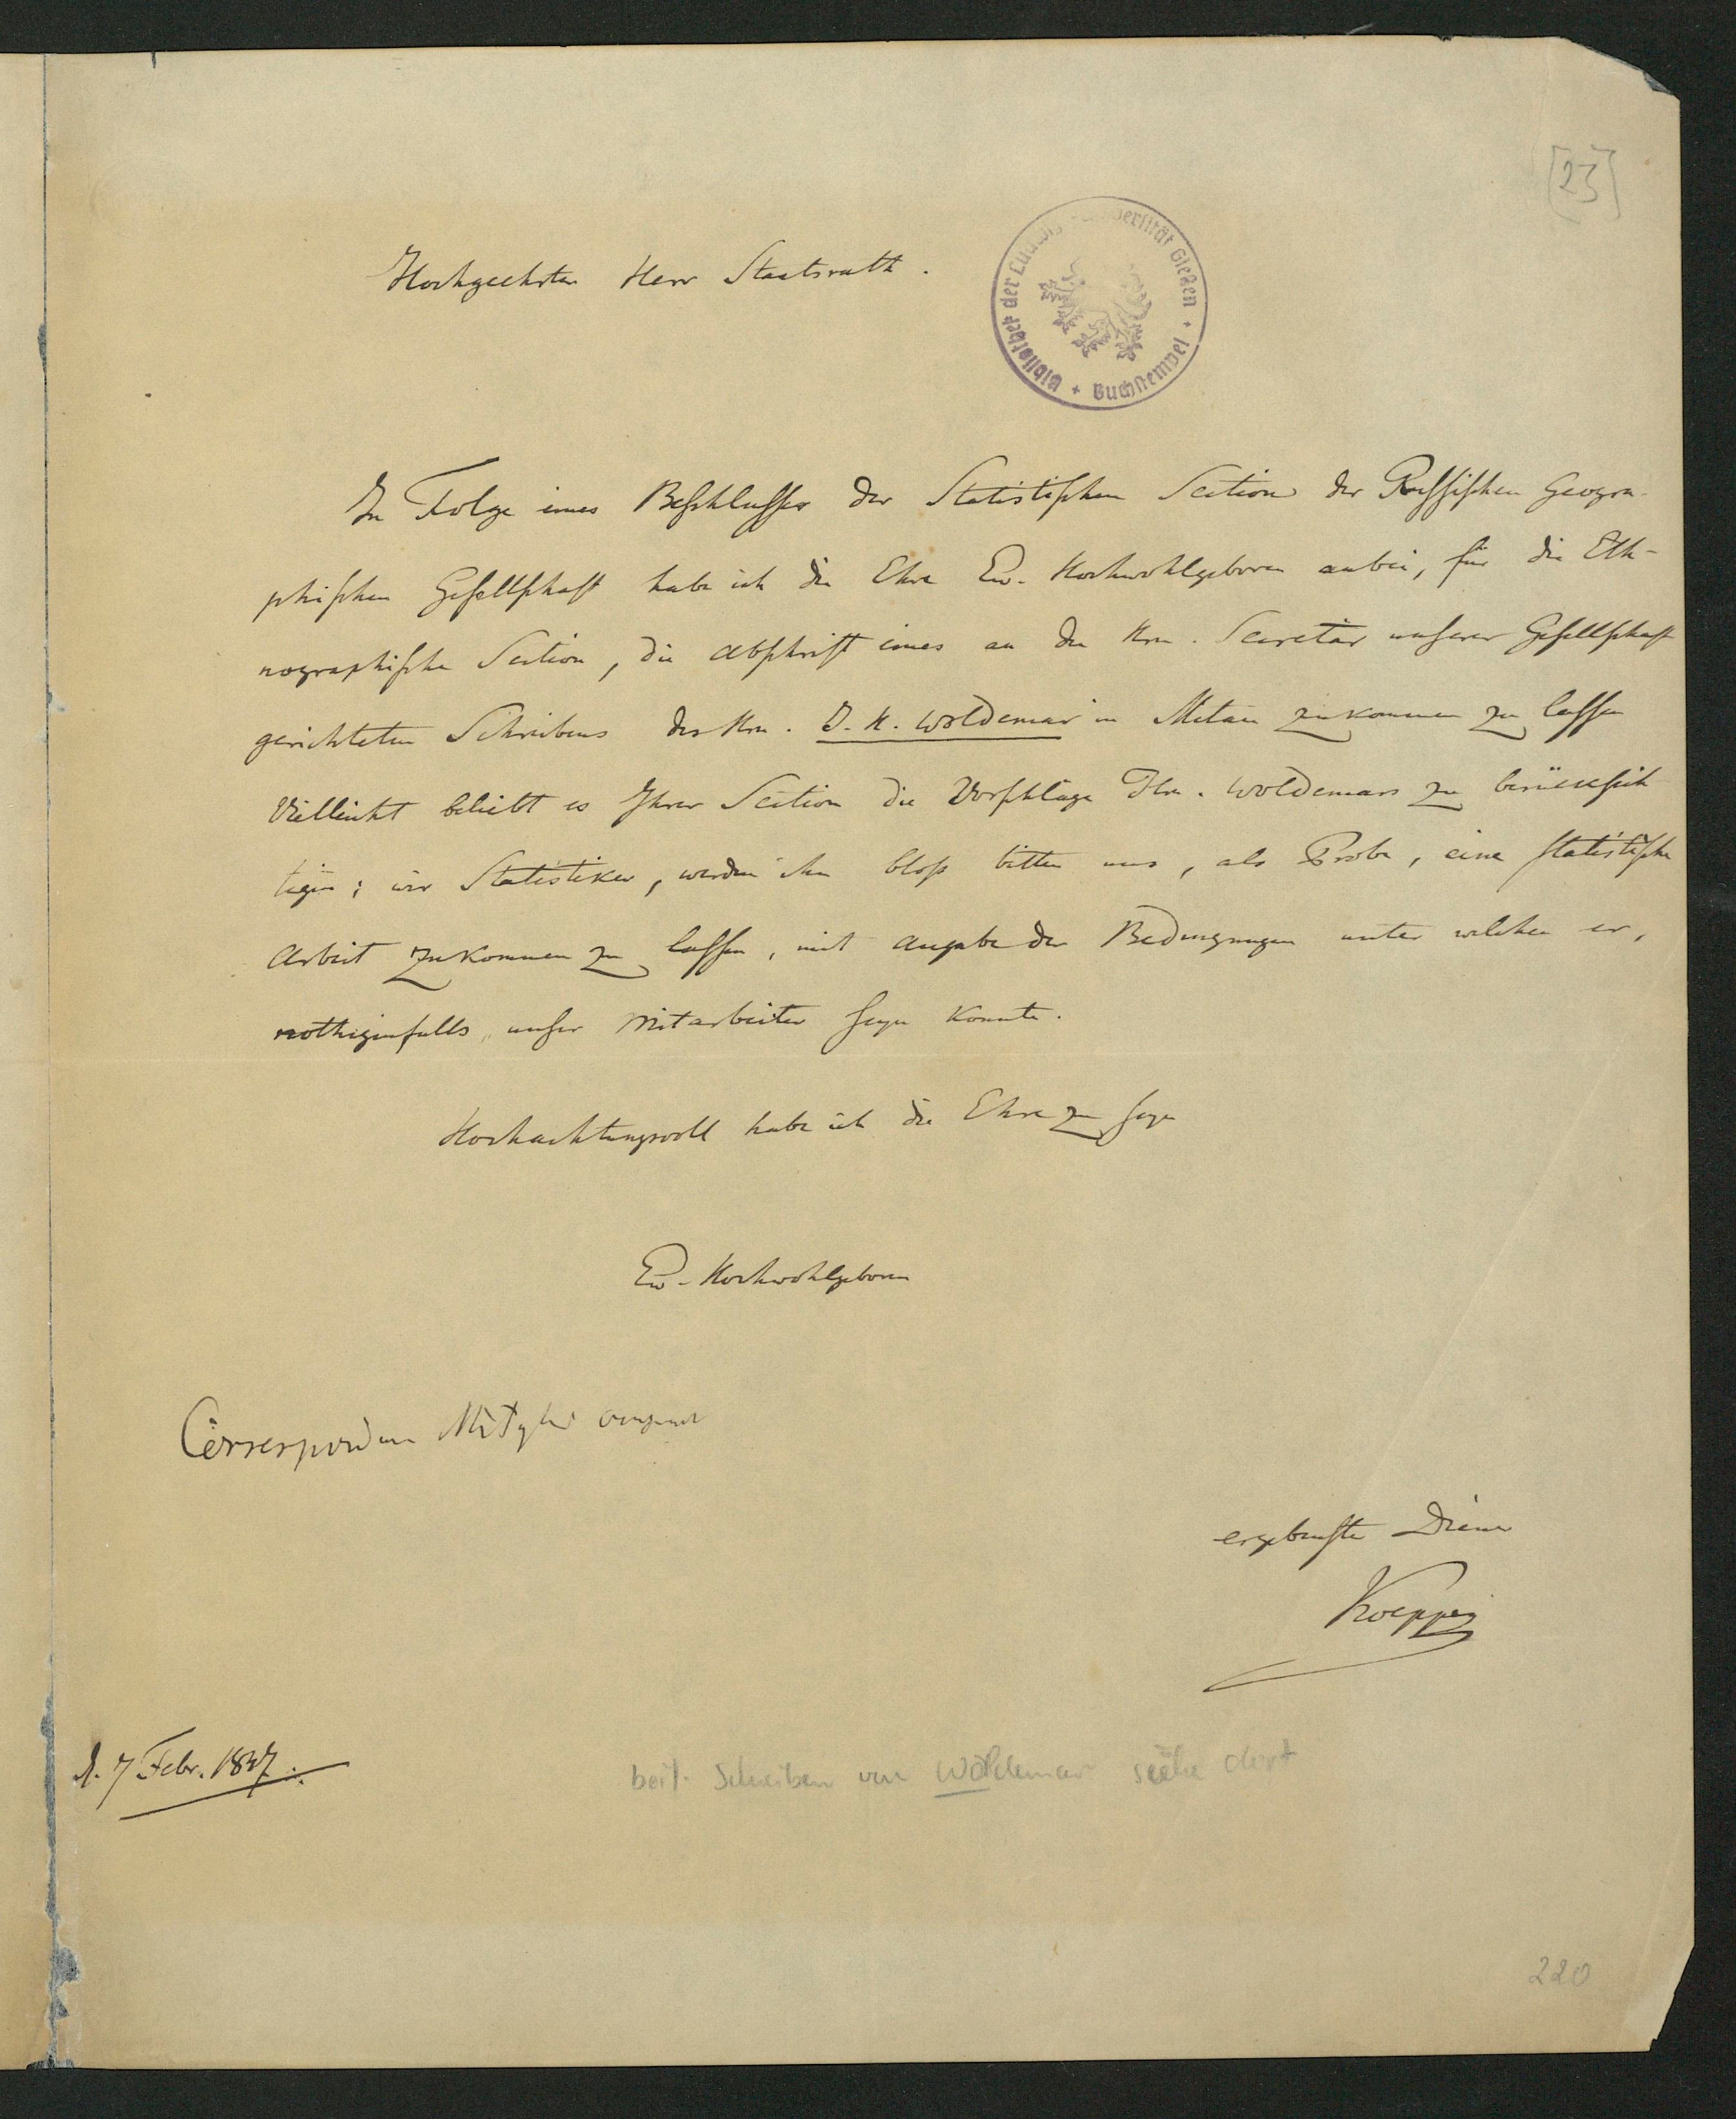 [23]
Hochgeehrter Herr Staatsrath.
Bibliothek der Ludwigs-Universität Gießen + Buchstempel +
In Folge eines Beschlusses der Statistischen Section der Russischen Geogra-
phischen Gesellschaft habe ich die Ehre Ew. Hochwohlgeboren anbei, für die Eth-
nographische Section, die Abschrift eines an den Hrn. Secretär unserer Gesellschaft
gerichteten Schreibens des Hrn. J. H. Woldemar in Mitau zukommen zu lassen
Vielleicht beliebt es Ihrer Section die Vorschläge Hrn. Woldemars zu berücksich
tigen; wir Statistiker, werden ihn bloß bitten uns, als Probe, eine statistische
Arbeit zukommen zu lassen, mit Angabe der Bedingungen unter welchen er,
nöthigenfalls, unser Mitarbeiter seyn könnte.
Hochachtungsvoll habe ich die Ehre zu seyn
Ew. Hochwohlgeboren
Corresponden Mitglied
ergebenster Diener
Koeppen
d. 7 Febr. 1847.
beil. Schreiben von Woldemar siehe dort
220